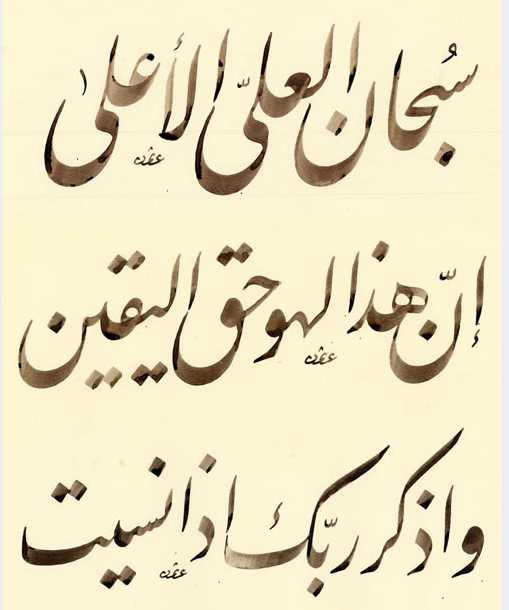 سُبحان العليّ الأعلى
إنّ هذا لهو حق اليقين
واذكر ربّك اذا نسيت